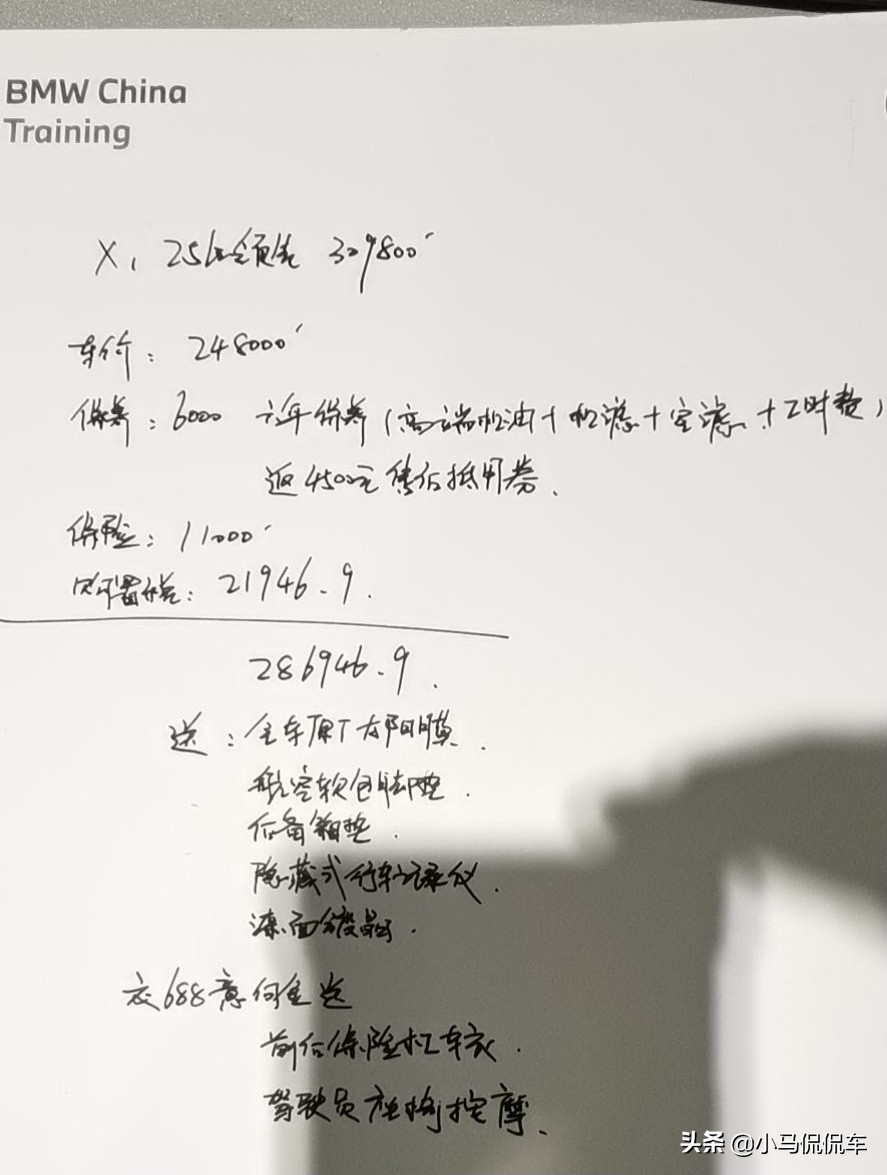 BMW China
Training
X1 25Li领先 309800
车价：248000
保养：6000 六年保养(高端机油+机滤+空滤+工时费)
返4500元售后抵用券.
保险：11000
购置税：21946.9.
286946.9.
送：全车原厂太阳膜.
航空软包脚垫.
后备箱垫.
隐藏式行车记录仪.
漆面镀晶.
交688意向金送
前后保险杠车衣.
驾驶员座椅按摩.
头条 @小马侃侃车